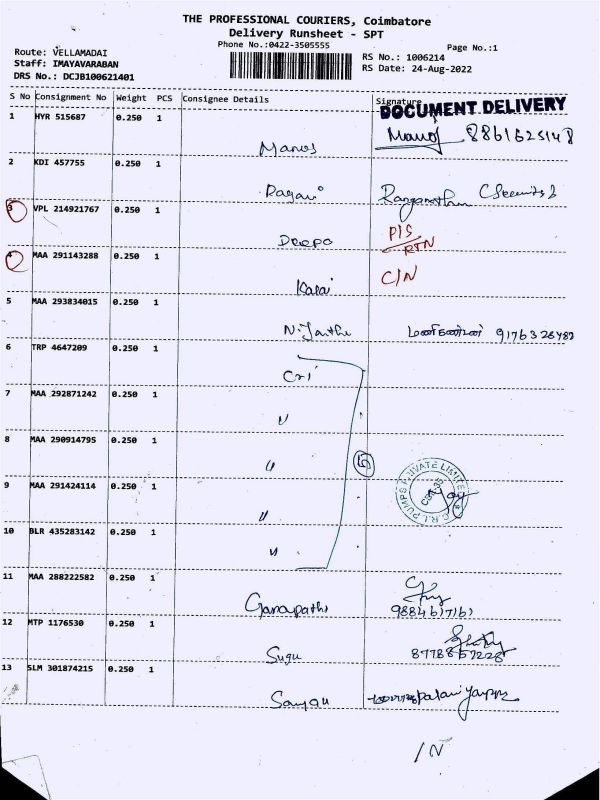 THE PROFESSIONAL COURIERS, Coimbatore
Delivery Runsheet - SPT
Phone No.:0422-3505555
Page No.:1
Route: VELLAMADAI
Staff: IMAYAVARABAN
DRS No.: DCJB100621401
RS No.: 1006214
RS Date: 24-Aug-2022
S No Consignment No Weight PCS Consignee Details Signature
DOCUMENT DELIVERY
1 HYR 515687 0.250 1 Manoj Manoj 8861625148
2 KDI 457755 0.250 1
3 VPL 214921767 0.250 1 Deepa P/S RTN
4 MAA 291143288 0.250 1 Kalai C/N
5 MAA 293834015 0.250 1
6 TRP 4647209 0.250 1 Cri
7 MAA 292871242 0.250 1 "
8 MAA 290914795 0.250 1 "
5
C.R.I. PUMPS PRIVATE LIMITED
9 MAA 291424114 0.250 1 "
10 BLR 435283142 0.250 1 "
11 MAA 288222582 0.250 1 Ganapathi 9884617161
12 MTP 1176530 0.250 1 Sugu
13 SLM 301874215 0.250 1
/ N